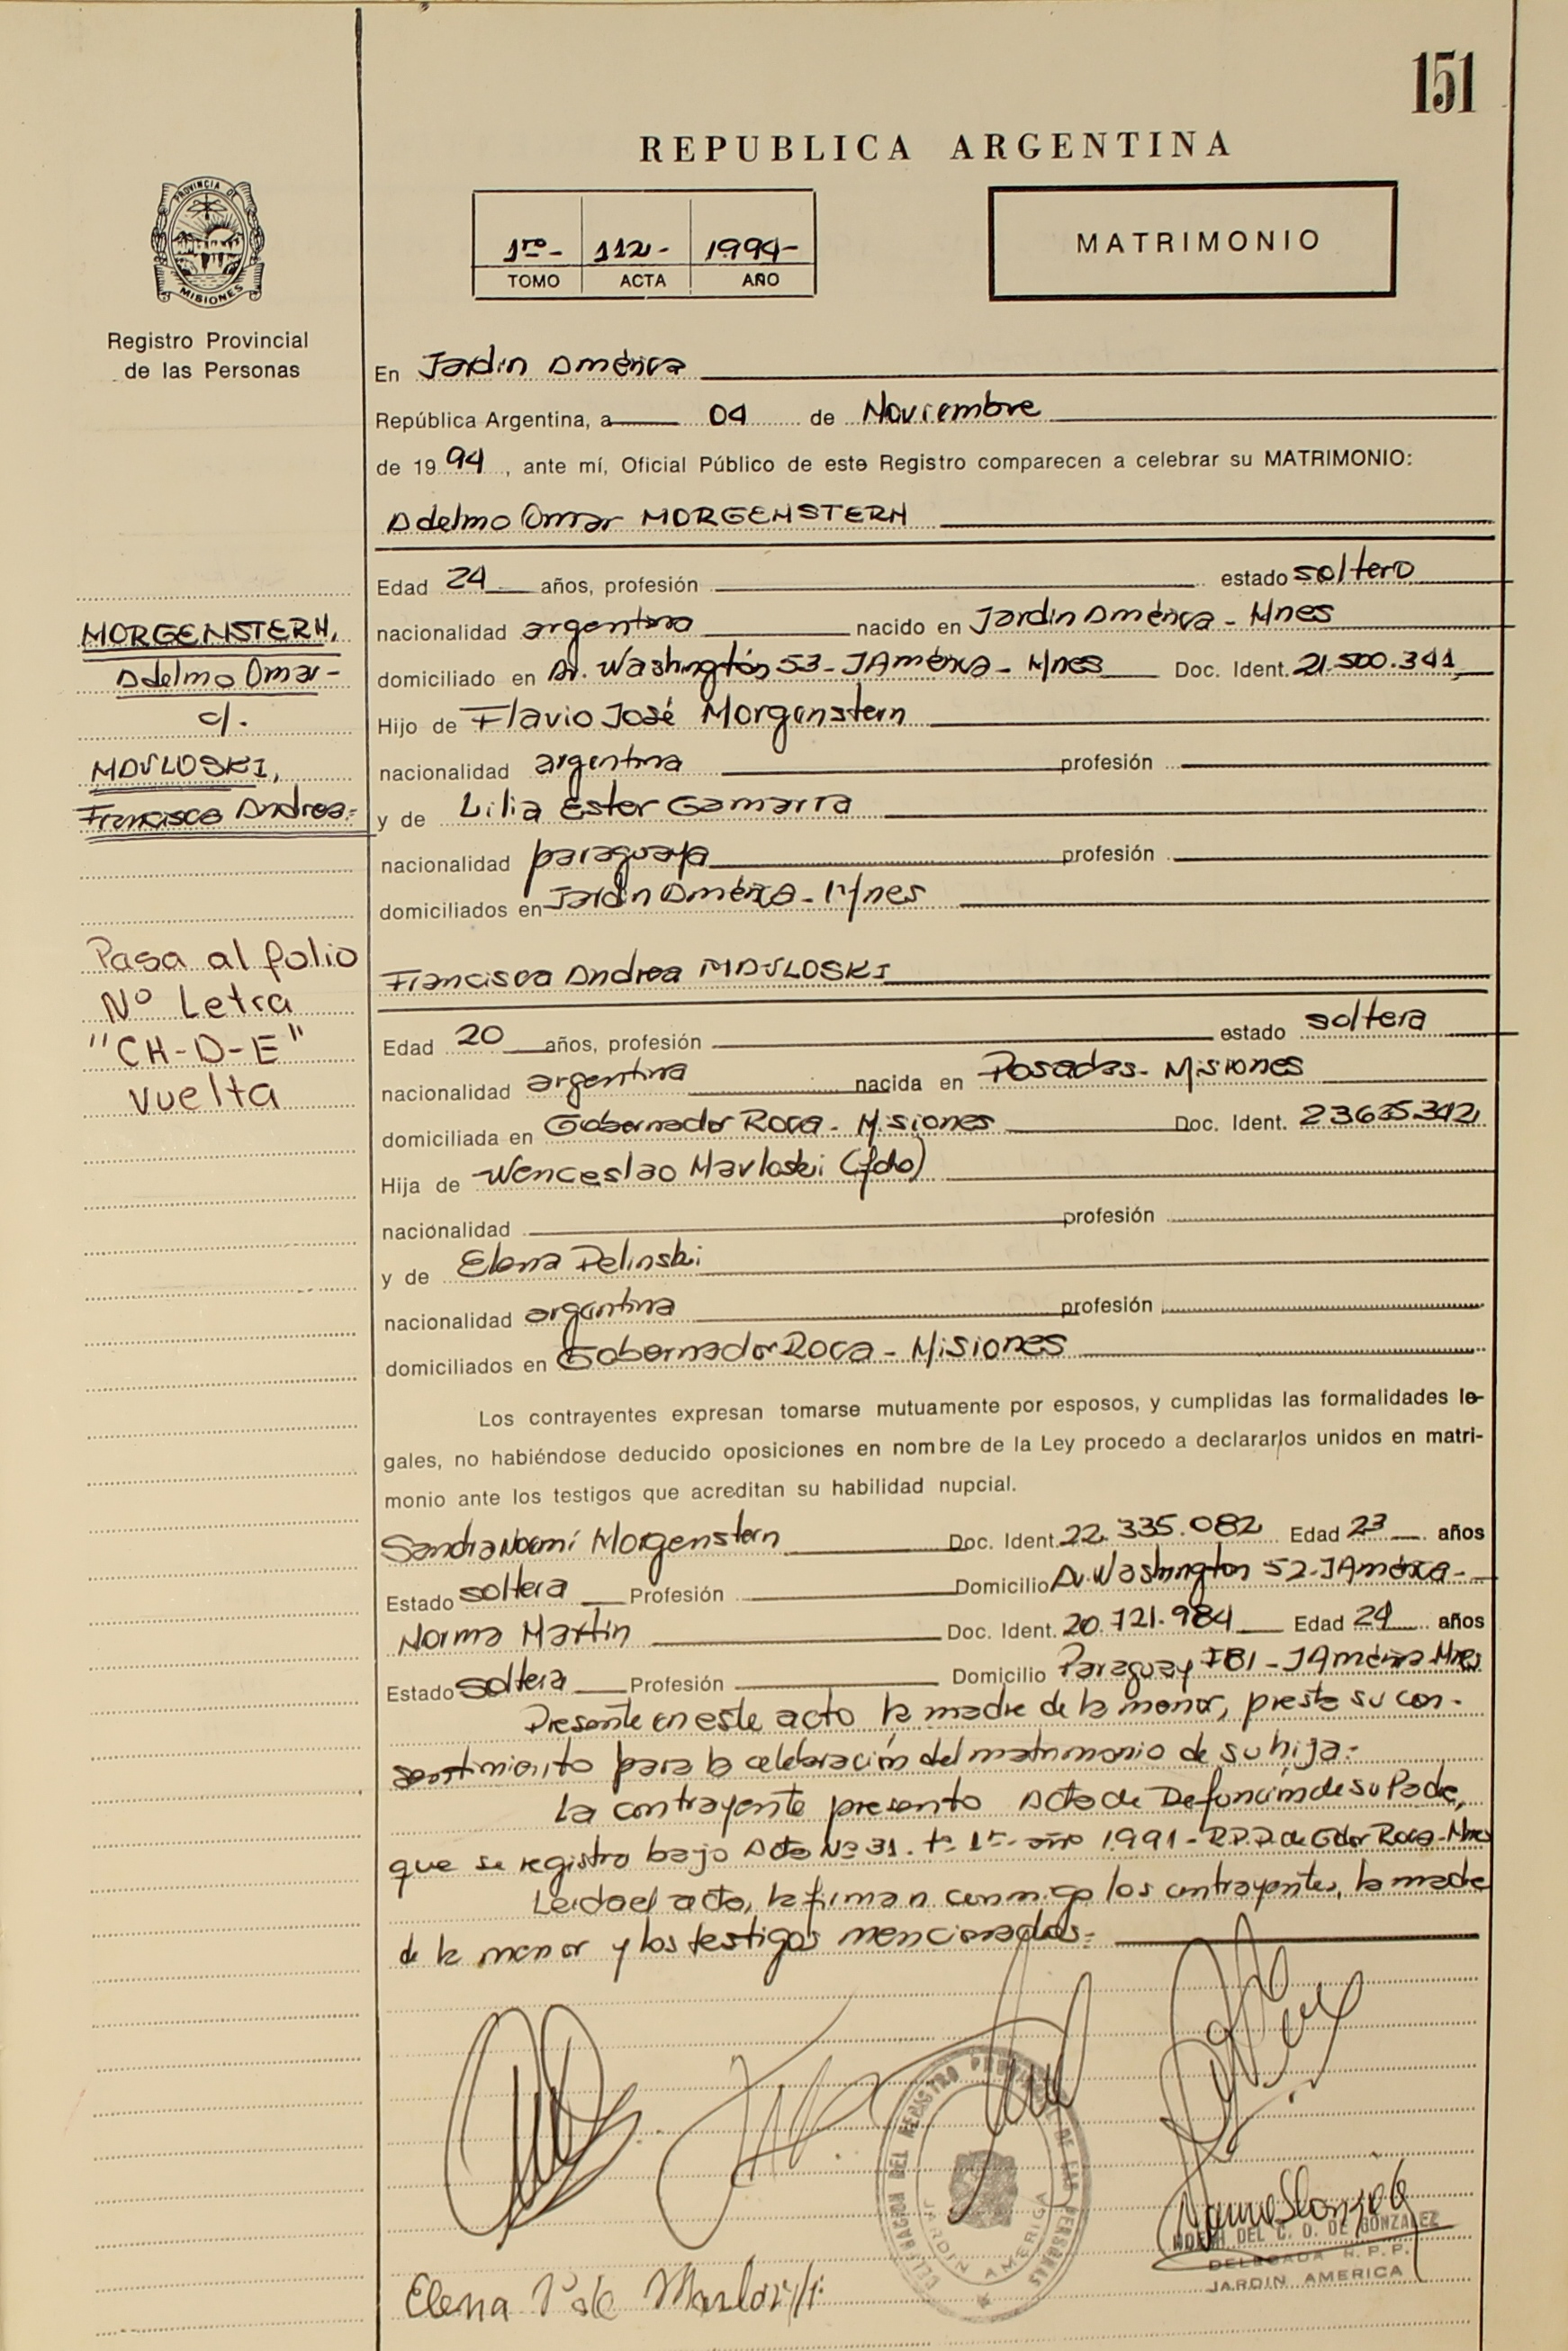 151
REPUBLICA ARGENTINA
PROVINCIA DE
MISIONES
Registro Provincial
de las Personas
1ro- 112- 1994-
TOMO ACTA AÑO
MATRIMONIO
En Jardin América
República Argentina, a 04 de Noviembre
de 1994, ante mí, Oficial Público de este Registro comparecen a celebrar su MATRIMONIO:
Adelmo Omar MORGENSTERN
Edad 24 años, profesión estado soltero
nacionalidad argentina nacido en Jardin América - Mnes
domiciliado en Av. Washington 53 - JAmérica - Mnes Doc. Ident. 21.500.341
Hijo de Flavio José Morgenstern
nacionalidad argentina profesión
y de Lilia Ester Gamarra
nacionalidad paraguaya profesión
domiciliados en Jardin América - Mnes
MORGENSTERN,
Adelmo Omar-
c/.
MAVLOSKI,
Francisca Andrea=
Pasa al folio
Nº Letra
"CH-D-E"
Vuelta
Francisca Andrea MAVLOSKI
Edad 20 años, profesión estado soltera
nacionalidad argentina nacida en Posadas - Misiones
domiciliada en Gobernador Roca - Misiones Doc. Ident. 23635.342
Hija de Wenceslao Mavloski (fdo)
nacionalidad profesión
y de Elena Pelinski
nacionalidad argentina profesión
domiciliados en Gobernador Roca - Misiones
Los contrayentes expresan tomarse mutuamente por esposos, y cumplidas las formalidades le-
gales, no habiéndose deducido oposiciones en nombre de la Ley procedo a declararlos unidos en matri-
monio ante los testigos que acreditan su habilidad nupcial.
Sandra Noemí Morgenstern Doc. Ident. 22.335.082 Edad 23 años
Estado soltera Profesión Domicilio Av. Washington 52-JAmérica-
Norma Martin Doc. Ident. 20.721.984 Edad 24 años
Estado soltera Profesión Domicilio Paraguay 781 - JAmérica Mnes
Presente en este acto la madre de la menor, presta su con-
sentimiento para la celebración del matrimonio de su hija-
La contrayente presento Acta de Defunción de su Padre,
que se registro bajo Acta Nº 31. tº 1º- año 1991- R.P.P. de Gdor Roca-Mnes
Leida el acta, la firman conmigo los contrayentes, la madre
de la menor y los testigos mencionados=
DELEGACION DEL REGISTRO PROVINCIAL DE LAS PERSONAS
JARDIN AMERICA
DEL C. D. DE GONZALEZ
DELEGADA R.P.P.
JARDIN AMERICA
Elena